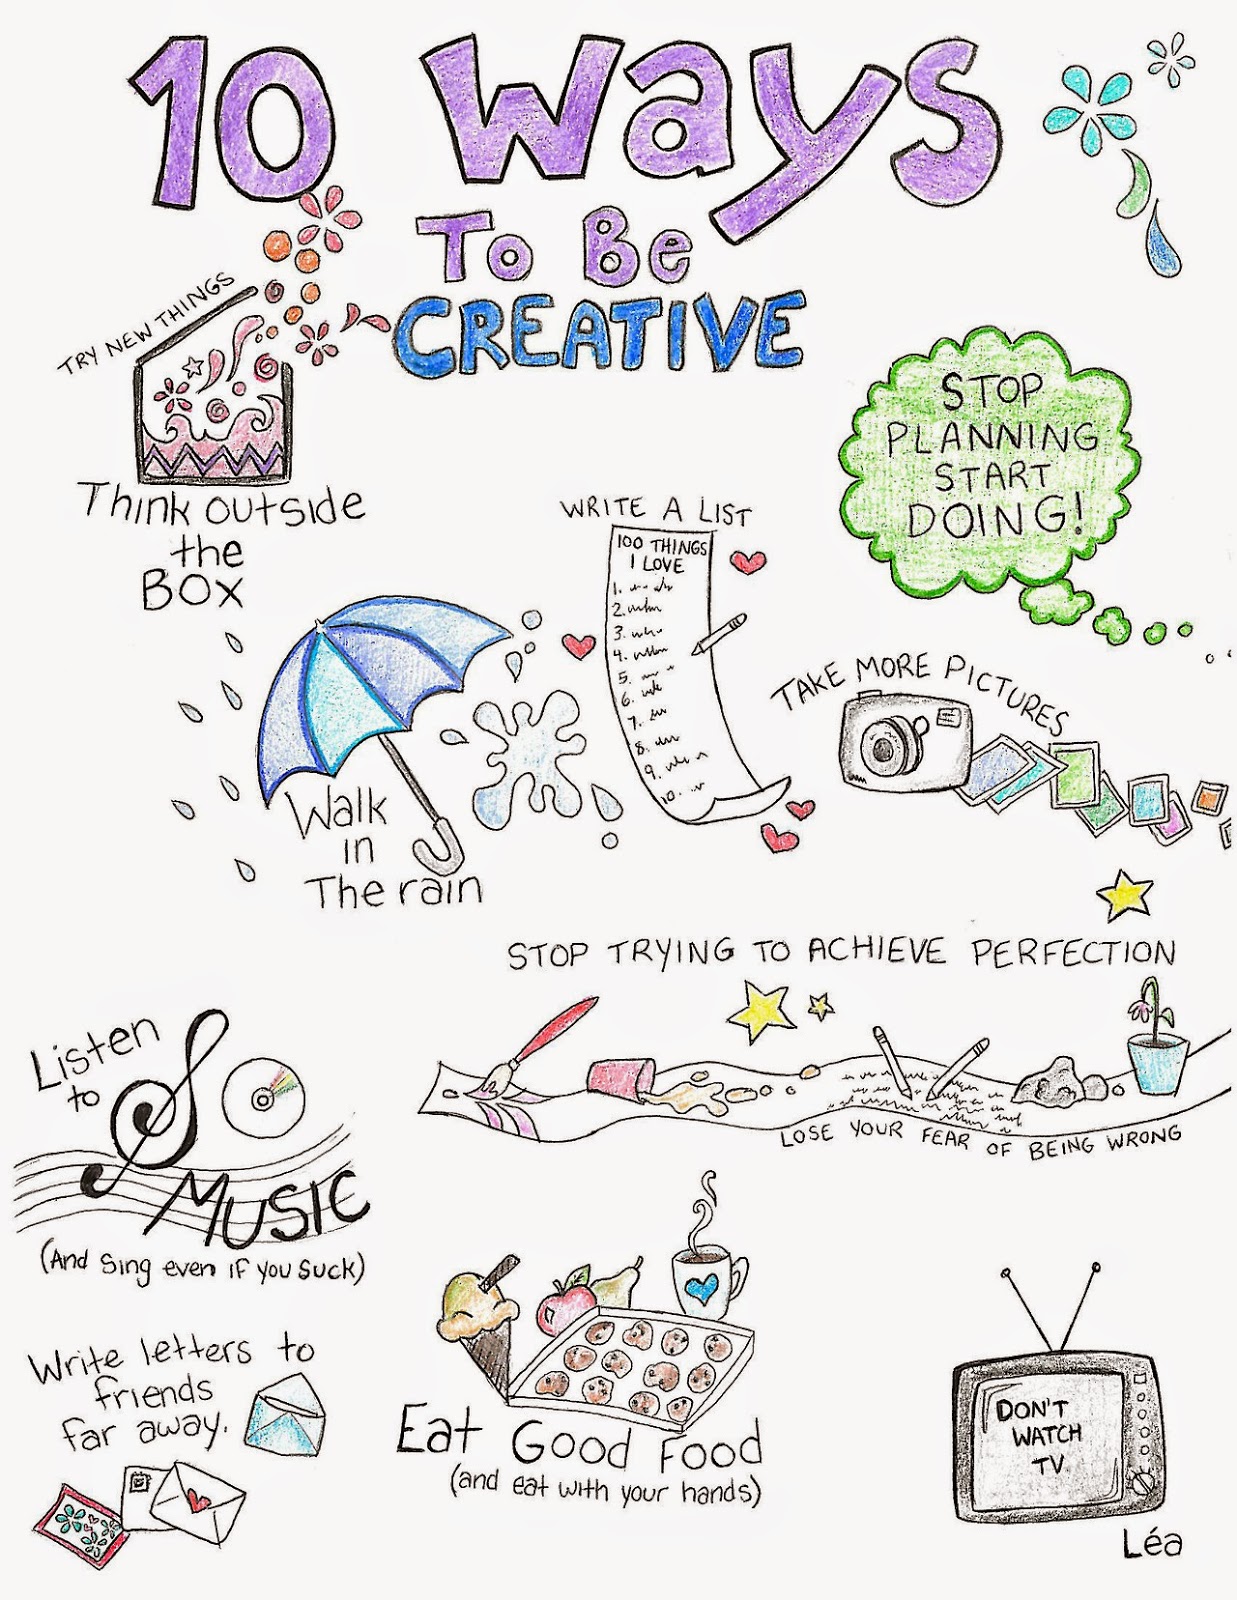 10 Ways
To Be
CREATIVE
TRY NEW THINGS
Think outside
the
BOX
STOP
PLANNING
START
DOING!
WRITE A LIST
100 THINGS
I LOVE
1.
2.
3.
4.
5.
6.
7.
8.
9.
10.
Walk
in
The rain
TAKE MORE PICTURES
STOP TRYING TO ACHIEVE PERFECTION
LOSE YOUR FEAR OF BEING WRONG
Listen
to
MUSIC
(And Sing even if you Suck)
Write letters to
friends
far away.
Eat Good Food
(and eat with your hands)
DON'T
WATCH
TV
Léa